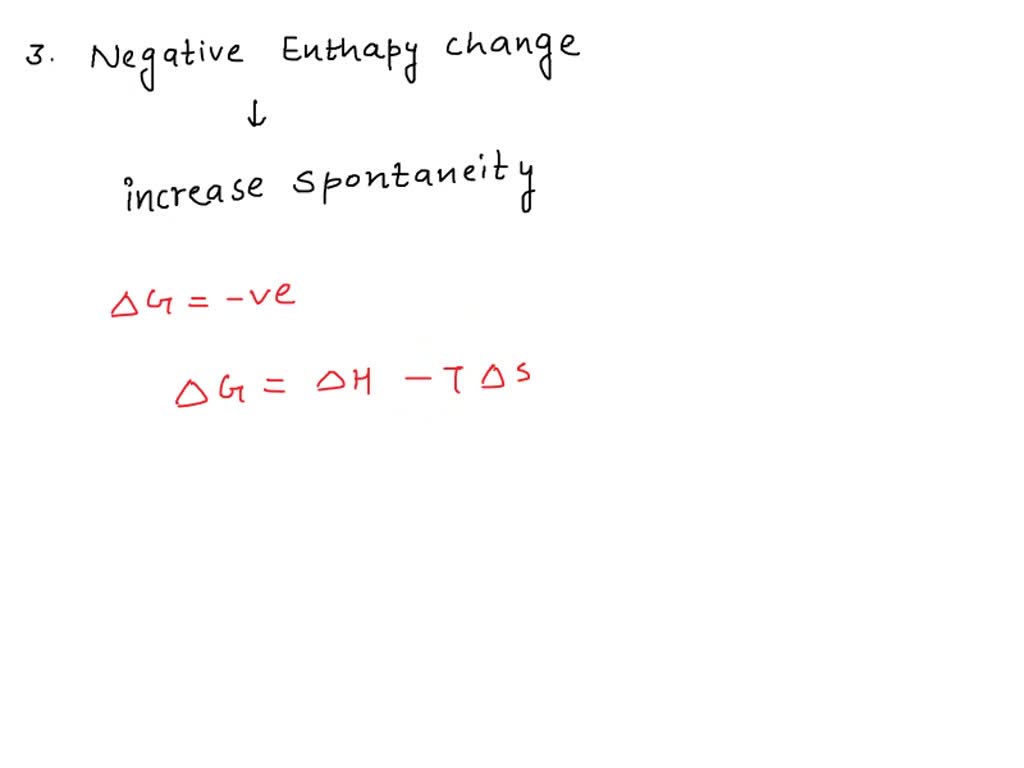 3. Negative Enthapy change
↓
increase spontaneity
ΔG = -ve
ΔG = ΔH - TΔS